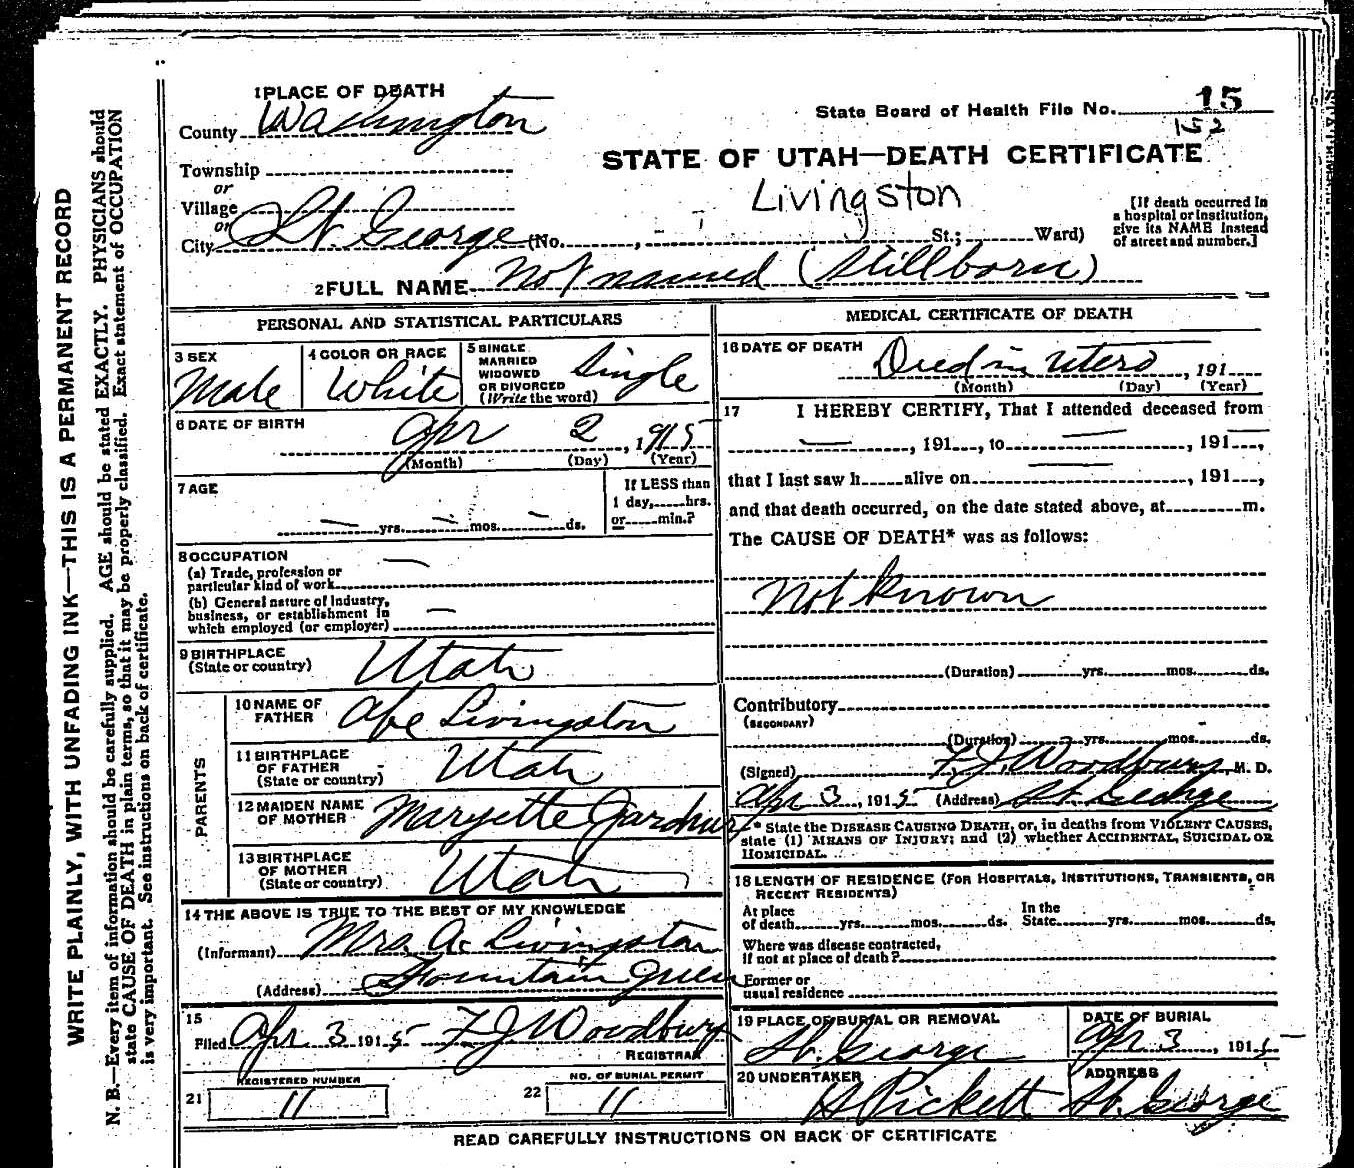 1 PLACE OF DEATH
County Washington
State Board of Health File No. 15
152
Township
or
Village
or
City St George (No. , St.; Ward)
STATE OF UTAH—DEATH CERTIFICATE
Livingston
[If death occurred in a hospital or institution, give its NAME instead of street and number.]
2 FULL NAME Not named (Stillborn)
PERSONAL AND STATISTICAL PARTICULARS
3 SEX
Male
4 COLOR OR RACE
White
5 SINGLE
MARRIED
WIDOWED
OR DIVORCED
(Write the word)
Single
6 DATE OF BIRTH
Apr 2, 1915
(Month) (Day) (Year)
7 AGE
— yrs. — mos. — ds.
If LESS than
1 day, hrs.
or min.?
8 OCCUPATION
(a) Trade, profession or
particular kind of work —
(b) General nature of Industry,
business, or establishment in
which employed (or employer) —
9 BIRTHPLACE
(State or country) Utah
PARENTS
10 NAME OF
FATHER Abe Livingston
11 BIRTHPLACE
OF FATHER
(State or country) Utah
12 MAIDEN NAME
OF MOTHER Maryette Gardner
13 BIRTHPLACE
OF MOTHER
(State or country) Utah
14 THE ABOVE IS TRUE TO THE BEST OF MY KNOWLEDGE
(Informant) Mrs. A. Livingston
(Address) Fountain Green
15
Filed Apr 3 1915 F J Woodbury
REGISTRAR
REGISTERED NUMBER
21 11
NO. OF BURIAL PERMIT
22 11
MEDICAL CERTIFICATE OF DEATH
16 DATE OF DEATH
Died in utero, 191
(Month) (Day) (Year)
17 I HEREBY CERTIFY, That I attended deceased from
—, 191, to —, 191—,
that I last saw h alive on —, 191,
and that death occurred, on the date stated above, at m.
The CAUSE OF DEATH* was as follows:
Not known
(Duration) yrs. mos. ds.
Contributory
(SECONDARY)
(Duration) yrs. mos. ds.
(Signed) F. J. Woodbury, M. D.
Apr 3, 1915 (Address) St. George
* State the DISEASE CAUSING DEATH, or, in deaths from VIOLENT CAUSES,
state (1) MEANS OF INJURY; and (2) whether ACCIDENTAL, SUICIDAL OR
HOMICIDAL.
18 LENGTH OF RESIDENCE (FOR HOSPITALS, INSTITUTIONS, TRANSIENTS, OR
RECENT RESIDENTS)
At place
of death yrs. mos. ds.
In the
State yrs. mos. ds.
Where was disease contracted,
if not at place of death?
Former or
usual residence
19 PLACE OF BURIAL OR REMOVAL
St. George
DATE OF BURIAL
Apr 3, 1915
20 UNDERTAKER
Pickett
ADDRESS
St. George
READ CAREFULLY INSTRUCTIONS ON BACK OF CERTIFICATE
WRITE PLAINLY, WITH UNFADING INK—THIS IS A PERMANENT RECORD
N. B.—Every item of information should be carefully supplied. AGE should be stated EXACTLY. PHYSICIANS should
state CAUSE OF DEATH in plain terms, so that it may be properly classified. Exact statement of OCCUPATION
is very important. See instructions on back of certificate.